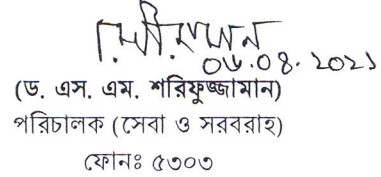 ০৬.০৪.২০২১
(ড. এস. এম. শরিফুজ্জামান)
পরিচালক (সেবা ও সরবরাহ)
ফোনঃ ৫৩০৩